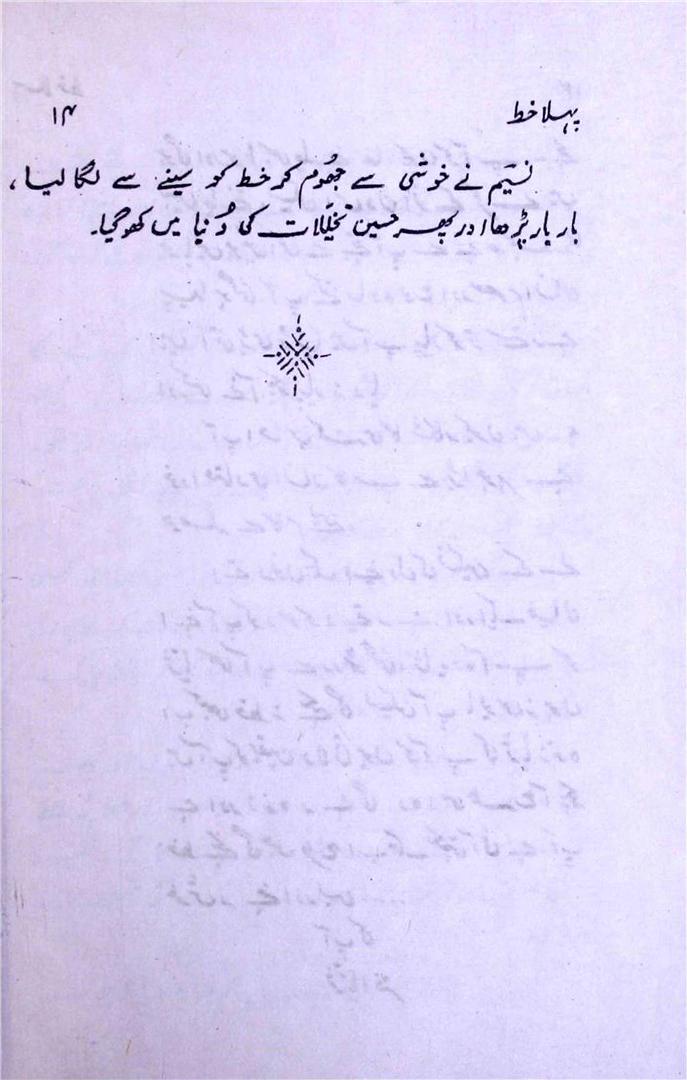 پہلا خط ۱۴
نسیؔم نے خوشی سے جھُوم کر خط کو سینے سے لگا لیا،
بار بار پڑھا اور پھر حسین تخیّلات کی دُنیا میں کھو گیا۔